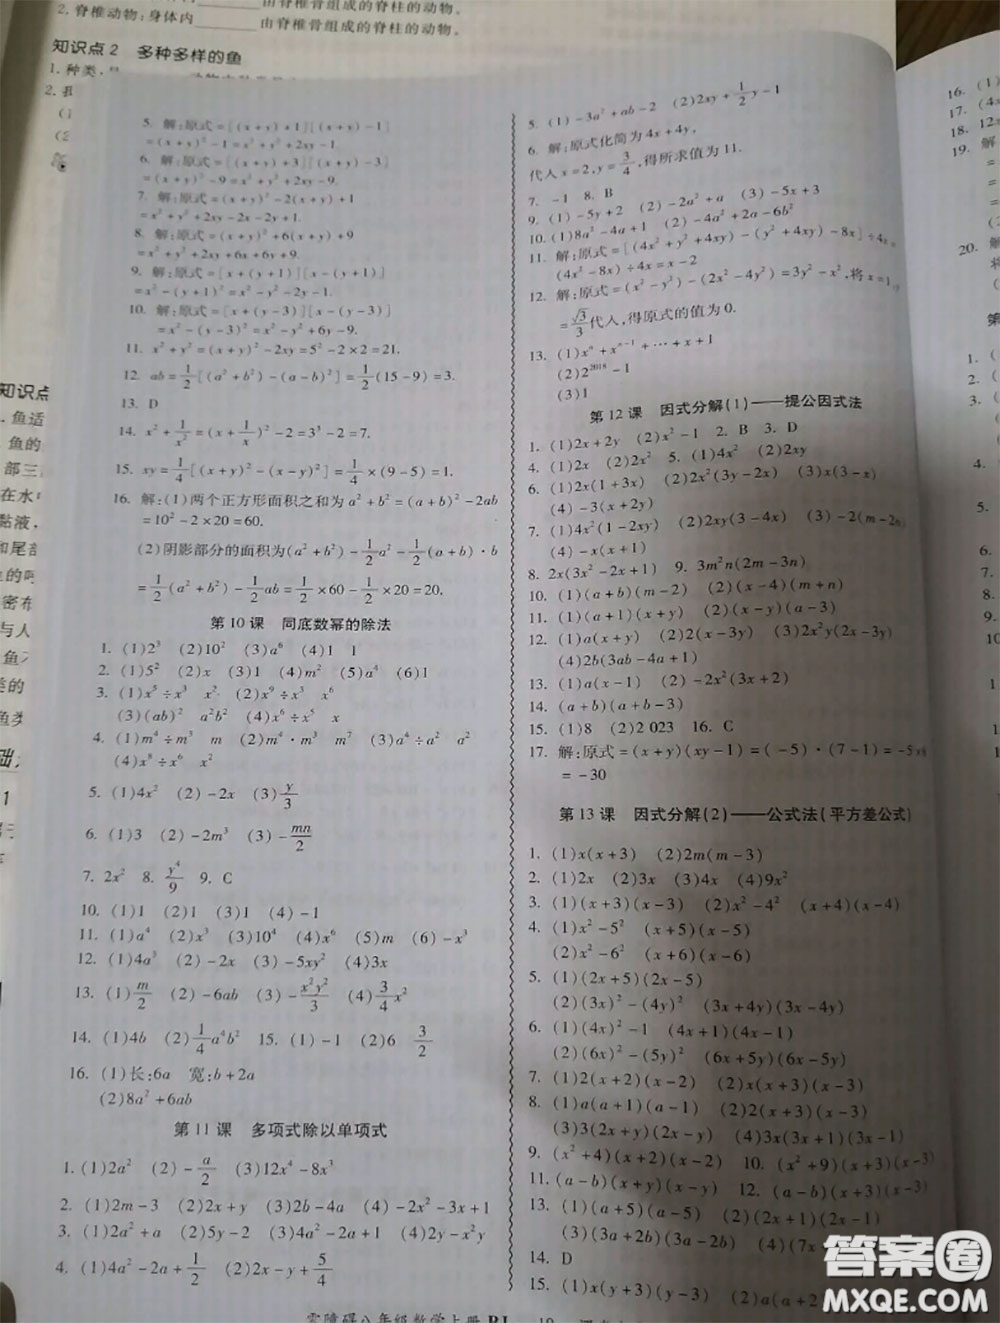 2. 脊椎动物:身体内______由脊椎骨组成的脊柱的动物。
知识点2 多种多样的鱼
1. 种类,
5. 解:原式=[(x+y)+1][(x+y)-1]
=(x+y)²-1=x²+y²+2xy-1.
6. 解:原式=[(x+y)+3][(x+y)-3]
=(x+y)²-9=x²+y²+2xy-9.
7. 解:原式=(x+y)²-2(x+y)+1
=x²+y²+2xy-2x-2y+1.
8. 解:原式=(x+y)²+6(x+y)+9
=x²+y²+2xy+6x+6y+9.
9. 解:原式=[x+(y+1)][x-(y+1)]
=x²-(y+1)²=x²-y²-2y-1.
10. 解:原式=[x+(y-3)][x-(y-3)]
=x²-(y-3)²=x²-y²+6y-9.
11. x²+y²=(x+y)²-2xy=5²-2×2=21.
12. ab=1/2[(a²+b²)-(a-b)²]=1/2(15-9)=3.
13. D
14. x²+1/x²=(x+1/x)²-2=3²-2=7.
15. xy=1/4[(x+y)²-(x-y)²]=1/4×(9-5)=1.
16. 解:(1)两个正方形面积之和为a²+b²=(a+b)²-2ab
=10²-2×20=60.
(2)阴影部分的面积为(a²+b²)-1/2a²-1/2(a+b)·b
=1/2(a²+b²)-1/2ab=1/2×60-1/2×20=20.
第10课 同底数幂的除法
1. (1)2³ (2)10² (3)a⁶ (4)1 1
2. (1)5² (2)x (3)1 (4)m² (5)a⁴ (6)1
3. (1)x⁵÷x³ x² (2)x⁹÷x³ x⁶
(3)(ab)² a²b² (4)x⁶÷x³ x³
4. (1)m⁴÷m³ m (2)m⁴·m³ m⁷ (3)a⁴÷a² a²
(4)x⁸÷x⁵ x³
5. (1)4x² (2)-2x (3)y/3
6. (1)3 (2)-2m³ (3)-mn/2
7. 2x² 8. y⁴/9 9. C
10. (1)1 (2)1 (3)1 (4)-1
11. (1)a⁴ (2)x³ (3)10⁴ (4)x⁶ (5)m (6)-x³
12. (1)4a³ (2)-2x (3)-5xy² (4)3x
13. (1)m/2 (2)-6ab (3)-x²y²/3 (4)3/4x²
14. (1)4b (2)1/4a⁴b² 15. (1)-1 (2)6 3/2
16. (1)长:6a 宽:b+2a
(2)8a²+6ab
第11课 多项式除以单项式
1. (1)2a² (2)-a/2 (3)12x⁴-8x³
2. (1)2m-3 (2)2x+y (3)2b-4a (4)-2x²-3x+1
3. (1)2a²+a (2)5y-2 (3)4a²-2a+1 (4)2y-x²y
4. (1)4a²-2a+1/2 (2)2x-y+5/4
5. (1)-3a²+ab-2 (2)2xy+1/2y-1
6. 解:原式化简为4x+4y,
代入x=2,y=3/4,得所求值为11.
7. -1 8. B
9. (1)-5y+2 (2)-2a²+a (3)-5x+3
10. (1)8a²-4a+1 (2)-4a²+2a-6b²
11. 解:原式=[(4x²+y²+4xy)-(y²+4xy)-8x]÷4x=
(4x²-8x)÷4x=x-2
12. 解:原式=(x²-y²)-(2x²-4y²)=3y²-x²,将x=1,y
=√3/3代入,得原式的值为0.
13. (1)xⁿ+xⁿ⁻¹+…+x+1
(2)2²⁰¹⁸-1
(3)1
第12课 因式分解(1)——提公因式法
1. (1)2x+2y (2)x²-1 2. B 3. D
4. (1)2x (2)2x² 5. (1)4x² (2)2xy
6. (1)2x(1+3x) (2)2x²(3y-2x) (3)x(3-x)
(4)-3(x+2y)
7. (1)4x²(1-2xy) (2)2xy(3-4x) (3)-2(m-2n)
(4)-x(1-x)
8. 2x(3x²-2x+1) 9. 3m²n(2m-3n)
10. (1)(a+b)(m-2) (2)(x-4)(m+n)
11. (1)(a+1)(x+y) (2)(x-y)(a-2)
12. (1)a(x+y) (2)2(x-3y) (3)2x²y(2x-y)
(4)2b(3ab-4a+1)
13. (1)a(x-1) (2)-2x²(3x+2)
14. (a+b)(a+b-3)
15. (1)8 (2)2 023 16. C
17. 解:原式=(x+y)(xy-1)=(-5)·(7-1)=-5×6
=-30
第13课 因式分解(2)——公式法(平方差公式)
1. (1)x(x+3) (2)2m(m-3)
2. (1)2x (2)3x (3)4x (4)9x²
3. (1)(x+3)(x-3) (2)x²-4² (x+4)(x-4)
4. (1)x²-5² (x+5)(x-5)
(2)x²-6² (x+6)(x-6)
5. (1)(2x+5)(2x-5)
(2)(3x)²-(4y)² (3x+4y)(3x-4y)
6. (1)(4x)²-1 (4x+1)(4x-1)
(2)(6x)²-(5y)² (6x+5y)(6x-5y)
7. (1)2(x+2)(x-2) (2)x(x+3)(x-3)
8. (1)a(a+1)(a-1) (2)2(x+3)(x-3)
(3)3(2x+y)(2x-y) (4)3x(1+2x)(1-2x)
9. (x²+4)(x+2)(x-2) 10. (x²+9)(x+3)(x-3)
11. (a-b)(x+y)(x-y) 12. (a-b)(x+3)(x-3)
13. (1)(a+5)(a-5) (2)
(3)(3a+2b)(3a-2b) (4)(7x
14. D
15. (1)(x+y)(x-y) (2)a(a+2)(a
零障碍八年级数学上册 RJ
知识点
. 鱼适
鱼的
部三
在水
黏液,
和尾部
鱼的呼
密布
与人
鱼
类的
鱼类
础
16. (1)
17. (4x
18. 12x
19. 解
20. 解
答案圈
MXQE.COM